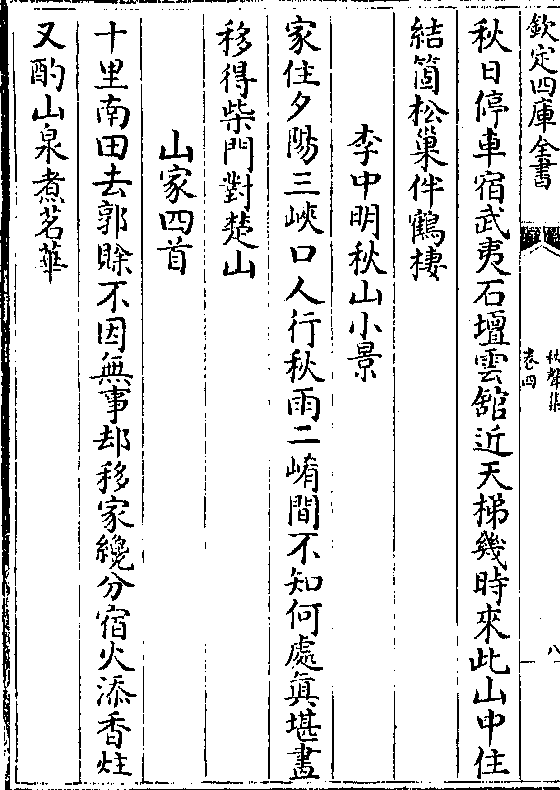 欽定四庫全書
秋聲集
卷四
八
秋日停車宿武夷石壇雲舘近天梯幾時來此山中住
結箇松巢伴鶴棲
李中明秋山小景
家住夕陽三峽口人行秋雨二崤間不知何處真堪畫
移得柴門對楚山
山家四首
十里南田去郭賖不因無事却移家纔分宿火添香炷
又酌山泉煮茗華